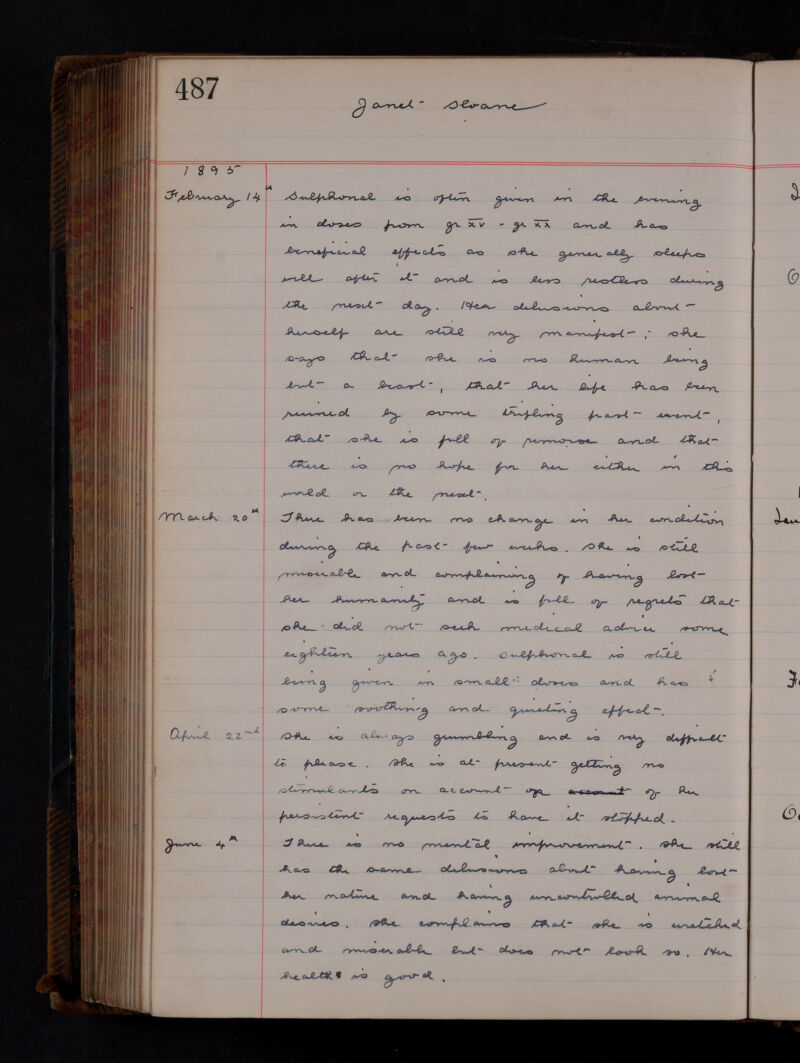 487
Janet Sloane
1895
February 14th Sulphonal is often given in the evening
in doses from gr xv - gr xx and has
beneficial effects as she generally sleeps
well after it and is less restless during
the next day. Her delusions about
herself are still very manifest; she
says that she is no human being
but a beast, that her life has been
ruined by some trifling past event,
that she is full of remorse and that
there is no hope for her either in this
world or the next.
March 20th There has been no change in her condition
during the past few weeks. She is still
miserable and complaining of having lost
her humanity and is full of regrets that
she did not seek medical advice some
eighteen years ago. Sulphonal is still
being given in small doses and has
some soothing and quieting effect.
April 22nd She is always grumbling and is very difficult
to please. She is at present getting no
stimulants on account of account of her
persistent requests to have it stopped.
June 4th There is no mental improvement. She still
has the same delusions about having lost
her nature and having uncontrolled animal
desires. She complains that she is wretched
and miserable but does not look so. Her
health is good.